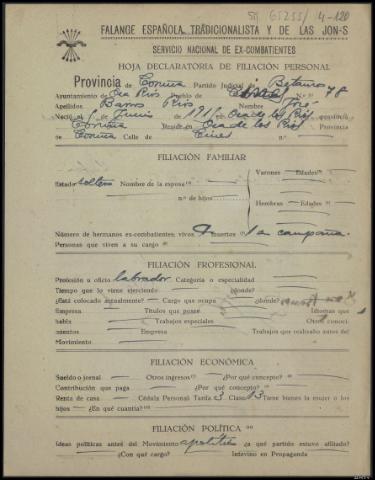 4-120
FALANGE ESPAÑOLA TRADICIONALISTA Y DE LAS JON-S
SERVICIO NACIONAL DE EX-COMBATIENTES
HOJA DECLARATORIA DE FILIACIÓN PERSONAL
Provincia de Coruña Partido Judicial de Betanzos
Ayuntamiento de Oza Rios Pueblo de Cines N.º 78
Apellidos Barros Rios Nombre José
Nació el de Junio de 191 en Oza de los Rios provincia
Coruña Reside en Oza de los Rios Provincia
de Coruña Calle de Cines n.º
FILIACIÓN FAMILIAR
Varones Edades
Estado soltero Nombre de la esposa
n.º de hijos
Hembras Edades
Número de hermanos ex-combatientes: vivos muertos 1 en campaña
Personas que viven a su cargo
FILIACIÓN PROFESIONAL
Profesión u oficio labrador Categoría o especialidad
Tiempo que lo viene ejerciendo ¿dónde?
¿Está colocado actualmente? Cargo que ocupa ¿dónde?
Empresa Títulos que posee Idiomas que
habla Trabajos especiales Otros conoci-
mientos Empresa Trabajos que realizaba antes del
Movimiento
FILIACIÓN ECONÓMICA
Sueldo o jornal Otros ingresos ¿Por qué concepto?
Contribución que paga ¿Por qué concepto?
Renta de casa Cédula Personal Tarifa 3 Clase 13 Tiene bienes la mujer o los
hijos ¿En qué cuantía?
FILIACIÓN POLÍTICA
Ideas políticas antes del Movimiento apolitico ¿a qué partido estuvo afiliado?
¿Con qué cargo? Intervino en Propaganda